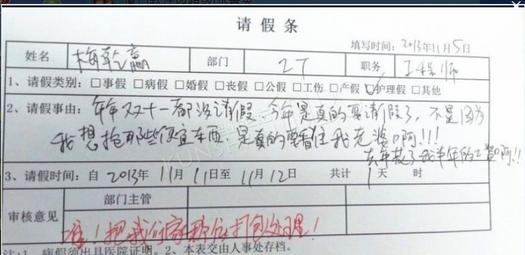 请假条
填写时间：2013年11月5日
姓名 梅乾赢 部门 IT 职务 工程师
1、请假类别：□事假 □病假 □婚假 □丧假 □公假 □工伤 □产假 □护理假 □其他
2、请假事由：年年双十一都没请假 今年是真的要请假了，不是因为
我想抢那些便宜东西 是真的要看住我老婆啊!!!
去年花了我半年的工资啊!!
3、请假时间：自 2013年 11月 11日至 11月 12日 共计 1天 时
部门主管
审核意见
准！把我们家那位打包处理！
注：1、病假须出具医院证明。2、本表交由人事处存档。